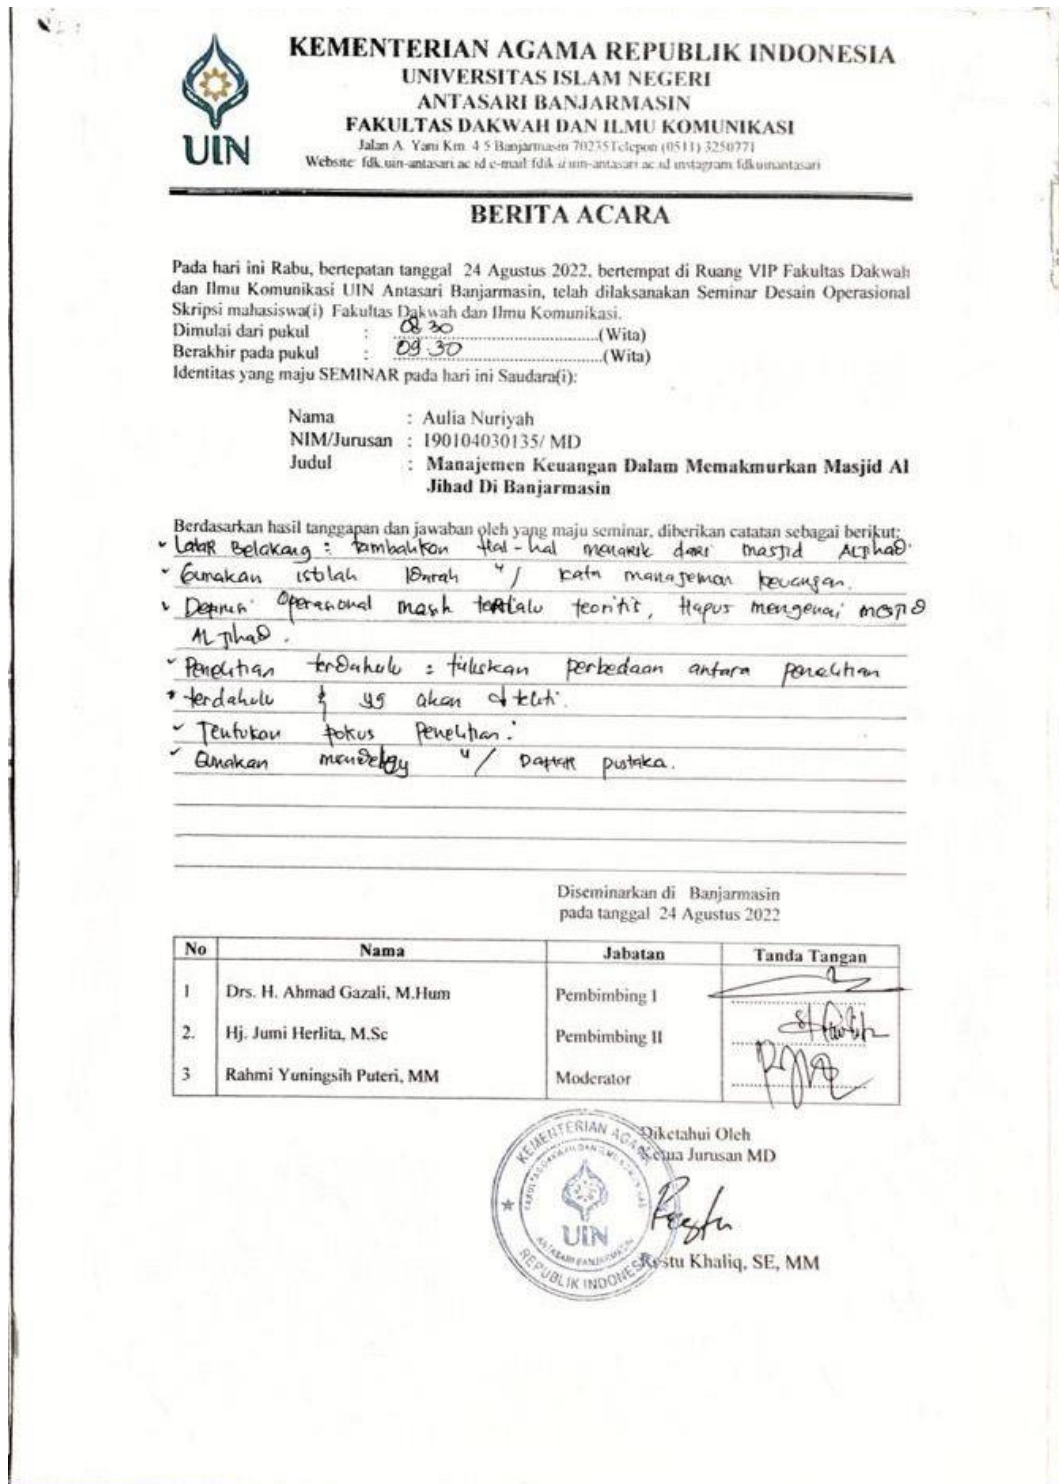 KEMENTERIAN AGAMA REPUBLIK INDONESIA
UNIVERSITAS ISLAM NEGERI
ANTASARI BANJARMASIN
FAKULTAS DAKWAH DAN ILMU KOMUNIKASI
Jalan A. Yani Km. 4 5 Banjarmasin 70235Telepon (0511) 3250771
Website: fdk.uin-antasari.ac.id e-mail: uin-antasari.ac.id instagram fdkuinantasari
UIN
BERITA ACARA
Pada hari ini Rabu, bertepatan tanggal 24 Agustus 2022, bertempat di Ruang VIP Fakultas Dakwah
dan Ilmu Komunikasi UIN Antasari Banjarmasin, telah dilaksanakan Seminar Desain Operasional
Skripsi mahasiswa(i) Fakultas Dakwah dan Ilmu Komunikasi.
Dimulai dari pukul : 08.30 (Wita)
Berakhir pada pukul : 09.30 (Wita)
Identitas yang maju SEMINAR pada hari ini Saudara(i):
Nama : Aulia Nuriyah
NIM/Jurusan : 190104030135/ MD
Judul : Manajemen Keuangan Dalam Memakmurkan Masjid Al
Jihad Di Banjarmasin
Berdasarkan hasil tanggapan dan jawaban oleh yang maju seminar, diberikan catatan sebagai berikut:
Latar Belakang : tambahkan Hal-hal menarik dari masjid Al Jihad.
Gunakan istilah u/ kata manajemen keuangan.
Definisi Operasional masih terlalu teoritis, Hapus mengenai mesjid
Al Jihad.
Penelitian terdahulu : tuliskan perbedaan antara penelitian
terdahulu & yg akan diteliti.
Tentukan fokus Penelitian.
Gunakan mendeley u/ Daftar pustaka.
Diseminarkan di Banjarmasin
pada tanggal 24 Agustus 2022
No Nama Jabatan Tanda Tangan
1 Drs. H. Ahmad Gazali, M.Hum Pembimbing I
2. Hj. Jumi Herlita, M.Sc Pembimbing II
3 Rahmi Yuningsih Puteri, MM Moderator
Diketahui Oleh
Ketua Jurusan MD
KEMENTERIAN AGAMA
UIN
ANTASARI BANJARMASIN
REPUBLIK INDONESIA
Restu Khaliq, SE, MM